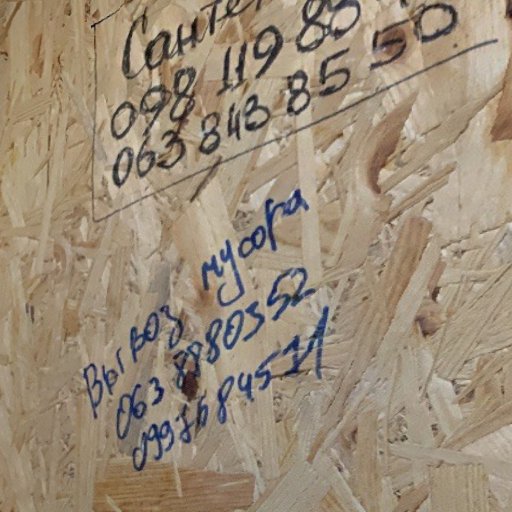 Санте
098 119 83
063 843 85 50
Вывоз мусора
063 8880352
0997684511